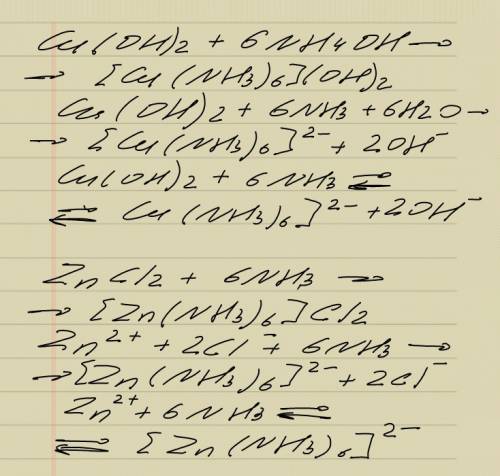 Cu(OH)2 + 6NH4OH →
→ [Cu(NH3)6](OH)2
Cu(OH)2 + 6NH3 + 6H2O →
→ [Cu(NH3)6]²⁻ + 2OH⁻
Cu(OH)2 + 6NH3 ⇌
⇌ Cu(NH3)6]²⁻ + 2OH⁻
ZnCl2 + 6NH3 →
→ [Zn(NH3)6]Cl2
Zn²⁺ + 2Cl⁻ + 6NH3 →
→ [Zn(NH3)6]²⁻ + 2Cl⁻
Zn²⁺ + 6NH3 ⇌
⇌ [Zn(NH3)6]²⁻